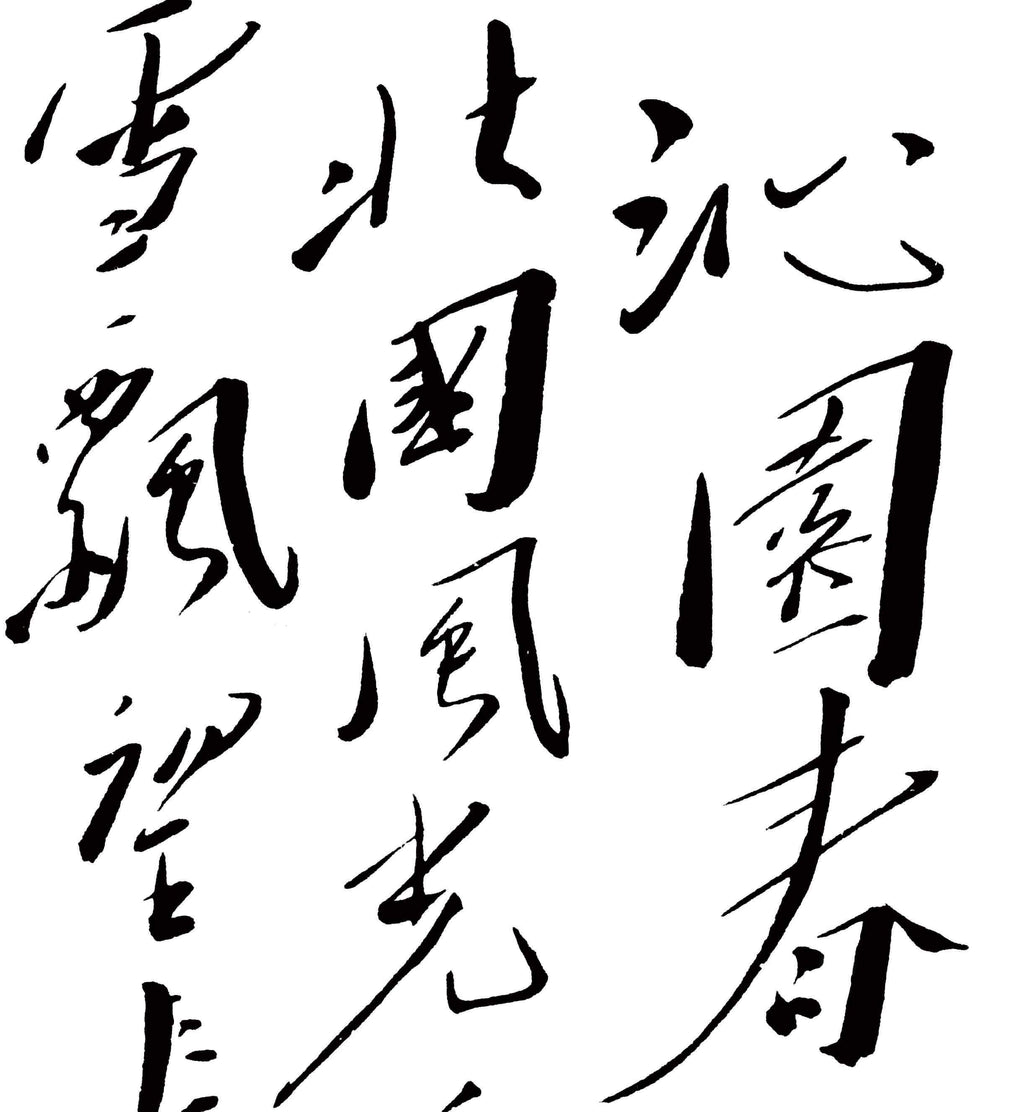 沁園春
北國風光
雪飄望長